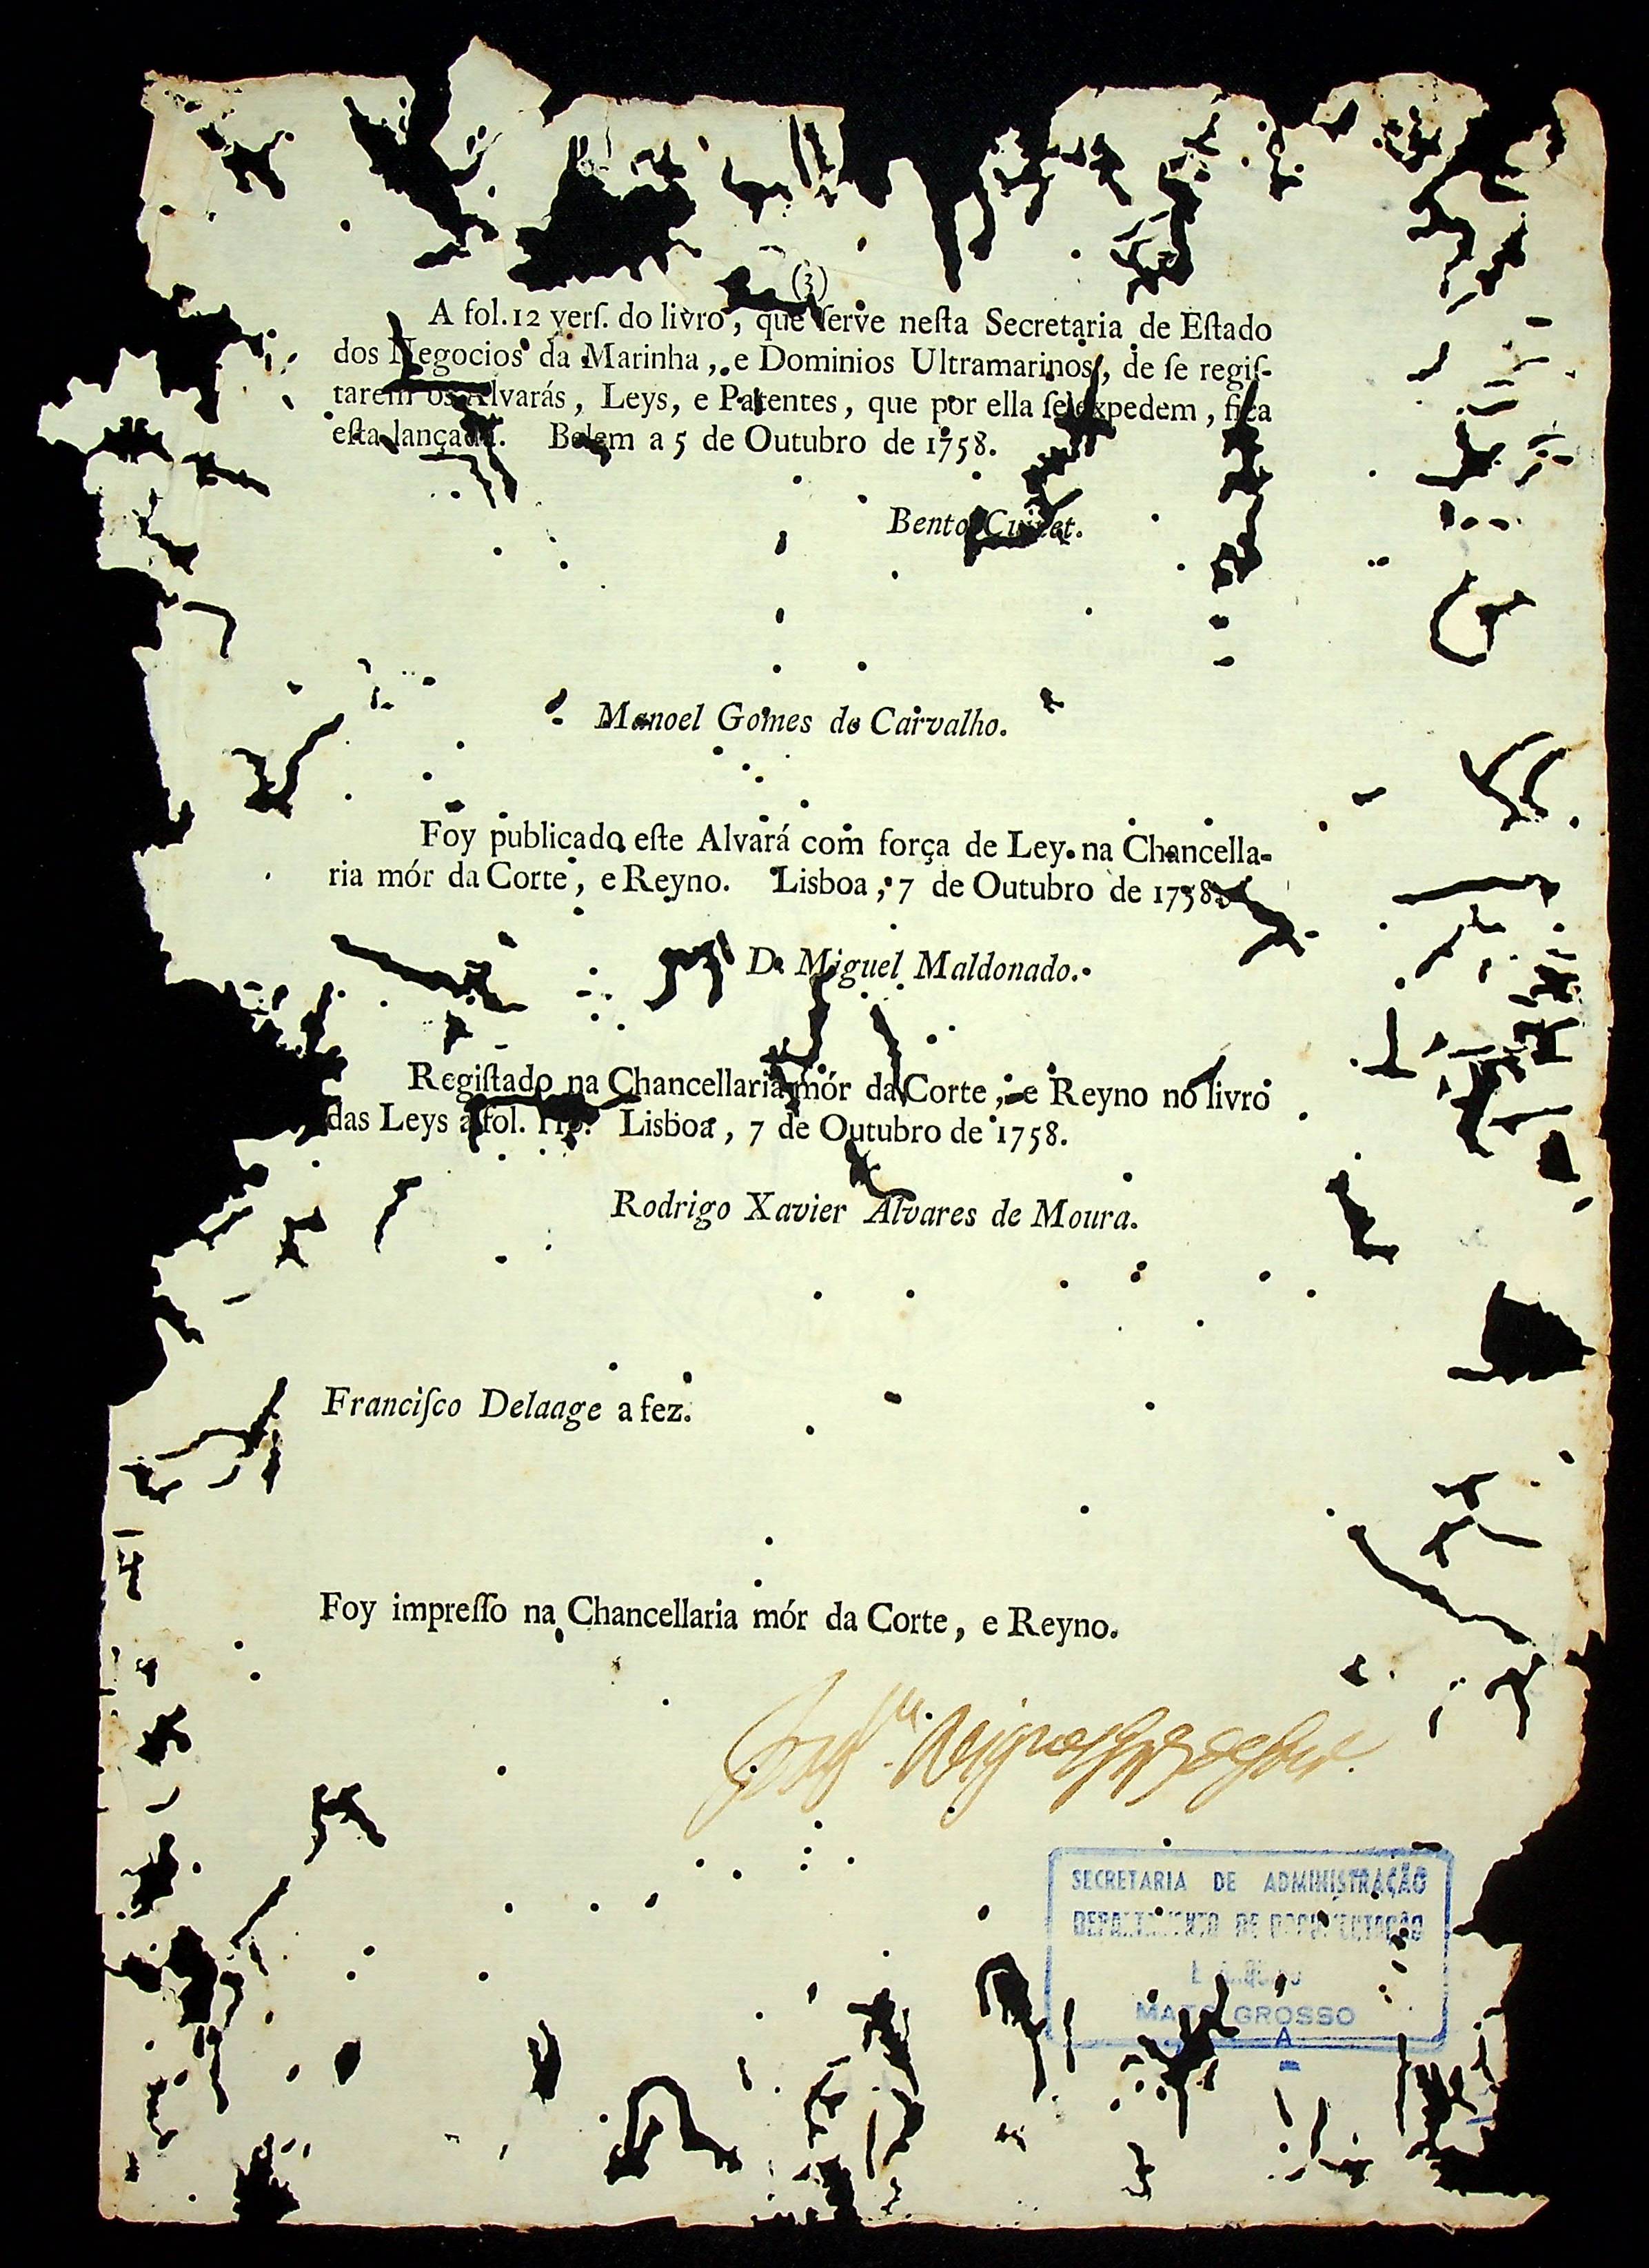 (3)
A fol. 12 verſ. do livro, que ſerve neſta Secretaria de Eſtado
dos Negocios da Marinha, e Dominios Ultramarinos, de ſe regiſ-
tarem os Alvarás, Leys, e Patentes, que por ella ſe expedem, fica
eſta lançada. Belem a 5 de Outubro de 1758.
Bento
Manoel Gomes de Carvalho.
Foy publicado eſte Alvará com força de Ley na Chancella-
ria mór da Corte, e Reyno. Lisboa, 7 de Outubro de 1758.
D. Miguel Maldonado.
Regiſtado na Chancellaria mór da Corte, e Reyno no livro
das Leys a fol. Lisboa, 7 de Outubro de 1758.
Rodrigo Xavier Alvares de Moura.
Franciſco Delaage a fez.
Foy impreſſo na Chancellaria mór da Corte, e Reyno.
SECRETARIA DE ADMINISTRAÇÃO
DEPARTAMENTO DE DOCUMENTAÇÃO
MATO GROSSO